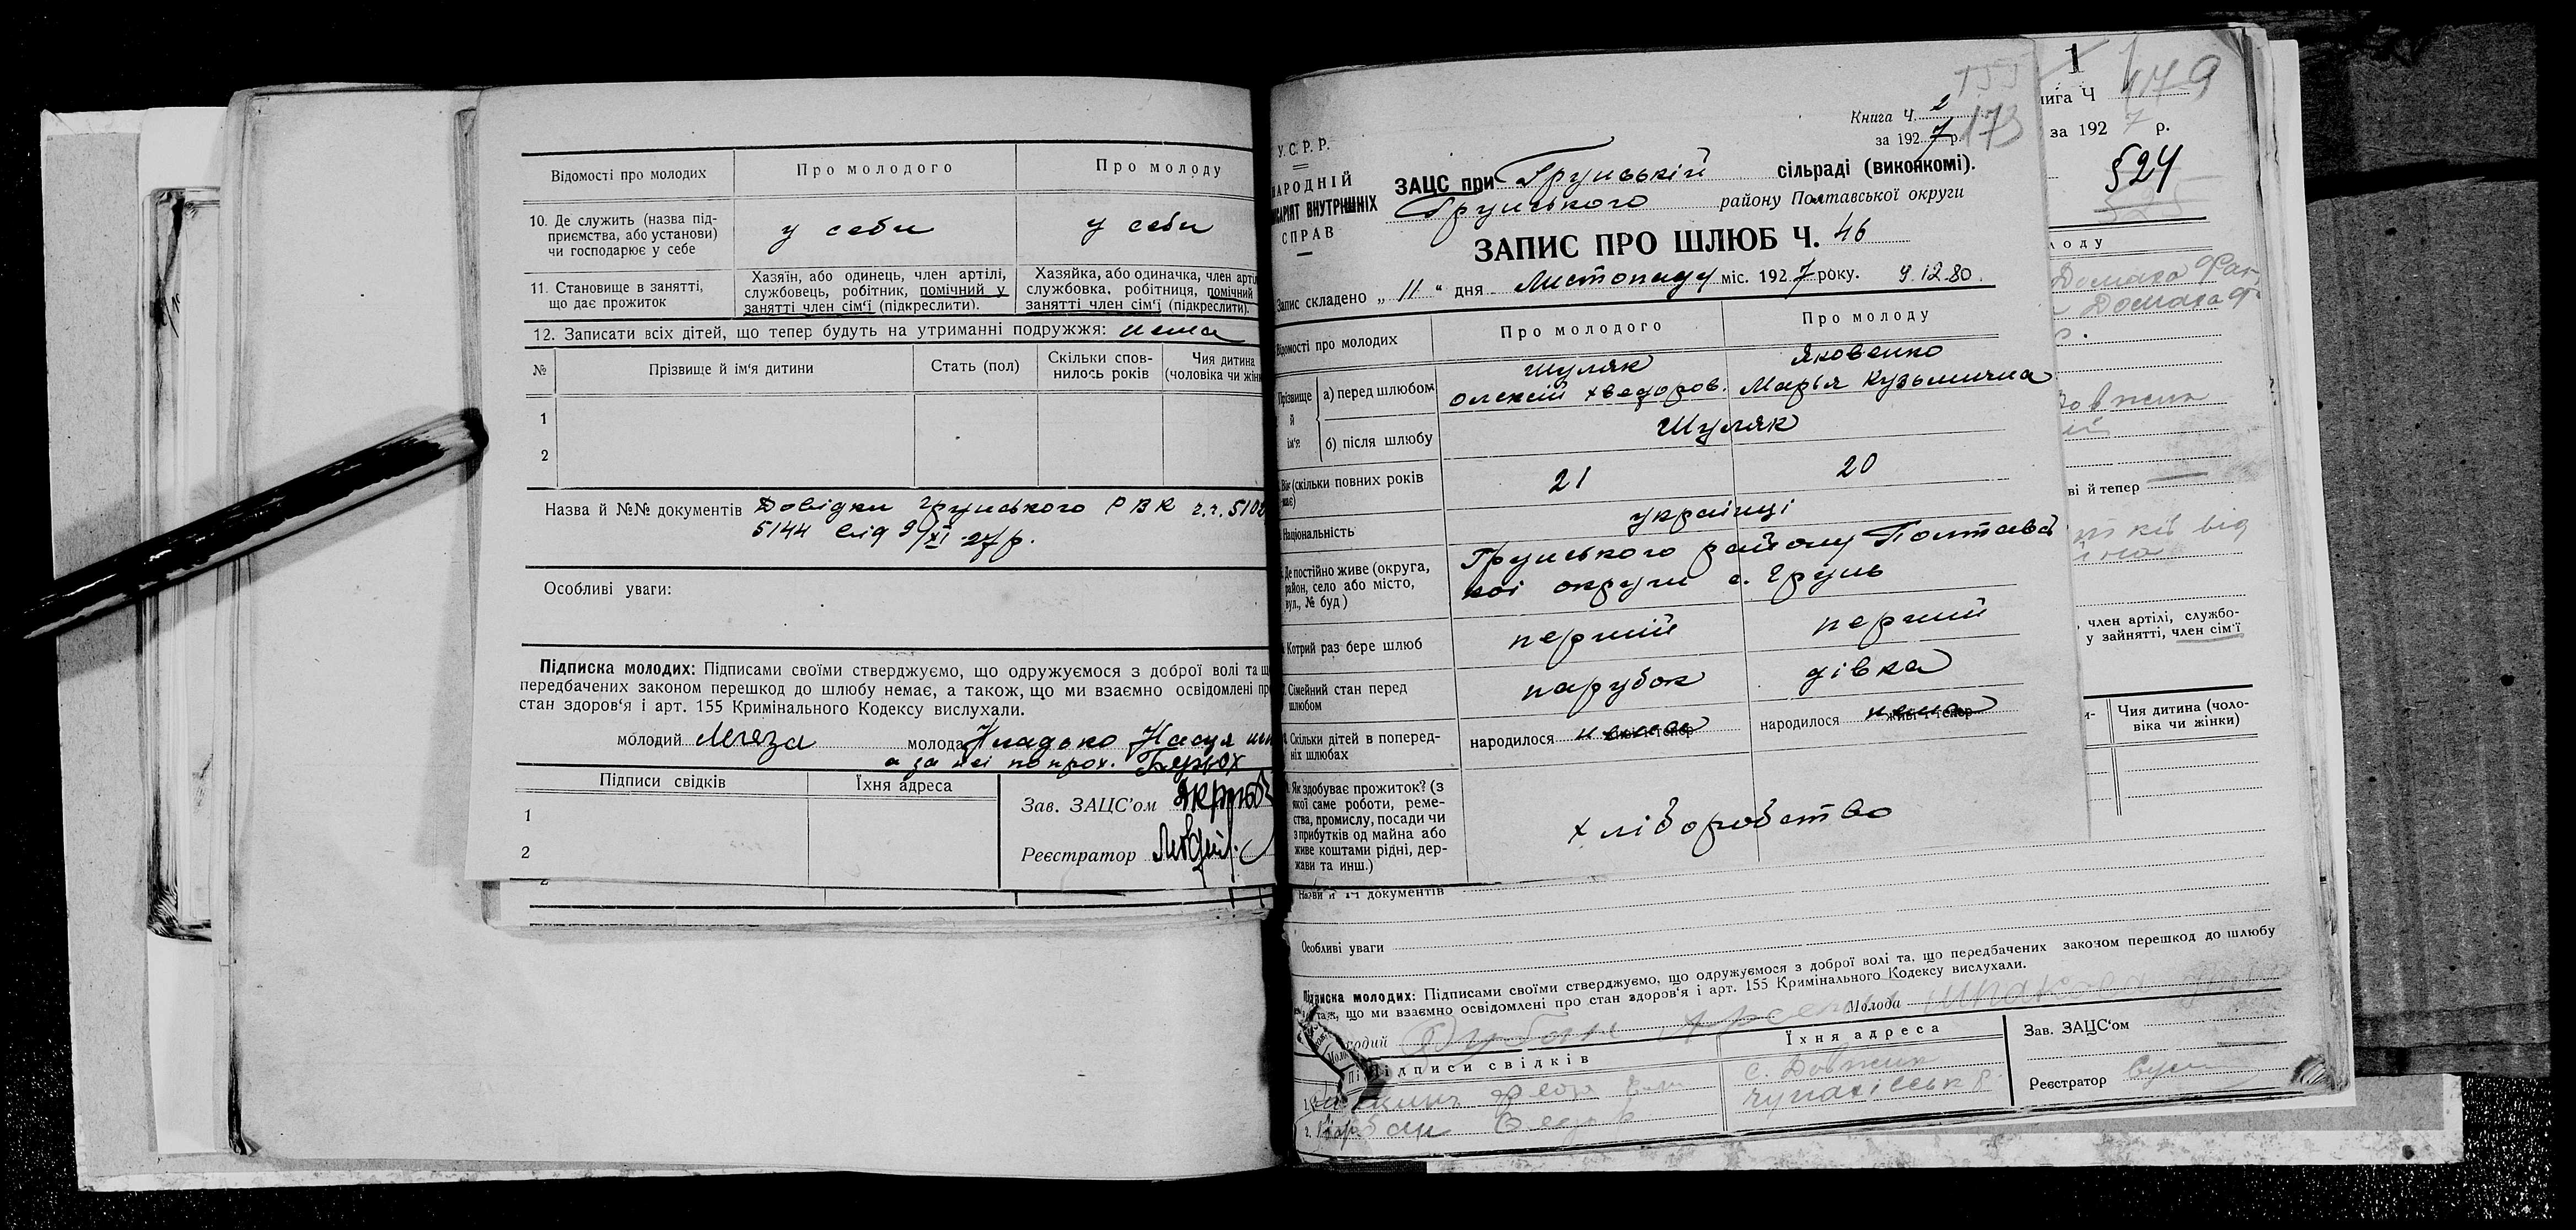 Відомості про молодих
Про молодого
Про молоду
10. Де служить (назва під-
приємства, або установи)
чи господарює у себе
у себи
у себи
11. Становище в занятті,
що дає прожиток
Хазяїн, або одинець, член артілі,
службовець, робітник, помічний у
занятті член сім'ї (підкреслити).
Хазяйка, або одиначка, член арті
службовка, робітниця, помічний
занятті член сім'ї (підкреслити).
12. Записати всіх дітей, що тепер будуть на утриманні подружжя: нема
№
Прізвище й ім'я дитини
Стать (пол)
Скільки спов-
нилось років
Чия дитина
(чоловіка чи жінк
1
2
Назва й №№ документів Довідки Грунського РВК ч.ч. 5102
5144 від 9/XI-27р.
Особливі уваги:
Підписка молодих: Підписами своїми стверджуємо, що одружуємося з доброї волі та щ
передбачених законом перешкод до шлюбу немає, а також, що ми взаємно освідомлені пр
стан здоров'я і арт. 155 Кримінального Кодексу вислухали.
молодий
молода
а за неї по прох.
Підписи свідків
Їхня адреса
1
2
Зав. ЗАЦС'ом
Реєстратор
У.С.Р.Р.
НАРОДНІЙ
КОМІСАРІЯТ ВНУТРІШНІХ
СПРАВ
Книга Ч. 2
за 1927 р.
173
ЗАЦС при Грунській сільраді (виконкомі).
Грунського району Полтавської округи
ЗАПИС ПРО ШЛЮБ Ч. 46
Запис складено „ 11 " дня Листопаду міс. 1927 року. 9.12.80.
Відомості про молодих
Про молодого
Про молоду
Прізвище
й
ім'я
а) перед шлюбом
Шуляк
Олексій Хведоров.
Яковенко
Марья Кузьмична
б) після шлюбу
Шуляк
Вік (скільки повних років
має)
21
20
Національність
українці
Де постійно живе (округа,
район, село або місто,
вул., № буд)
Грунського району Полтавсь
кої округи с. Грунь
Котрий раз бере шлюб
перший
перший
Сімейний стан перед
шлюбом
парубок
дівка
Скільки дітей в поперед-
ніх шлюбах
народилося нема
народилося нема
Як здобуває прожиток? (з
якої саме роботи, реме-
ства, промислу, посади чи
з прибутків од майна або
живе коштами рідні, дер-
жави та инш.)
хліборобство
1
нига Ч 179
за 1927 р.
§24
лоду
Домаха
Домаха
ві й тепер
від
член артілі, службо-
у зайнятті, член сім'ї
Чия дитина (чоло-
віка чи жінки)
документів
Особливі уваги
Підписка молодих: Підписами своїми стверджуємо, що одружуємося з доброї волі та, що передбачених законом перешкод до шлюбу
таж, що ми взаємно освідомлені про стан здоров'я і арт. 155 Кримінального Кодексу вислухали.
Молода
Підписи свідків
Їхня адреса
с. Довжик
Зав. ЗАЦС'ом
Реєстратор